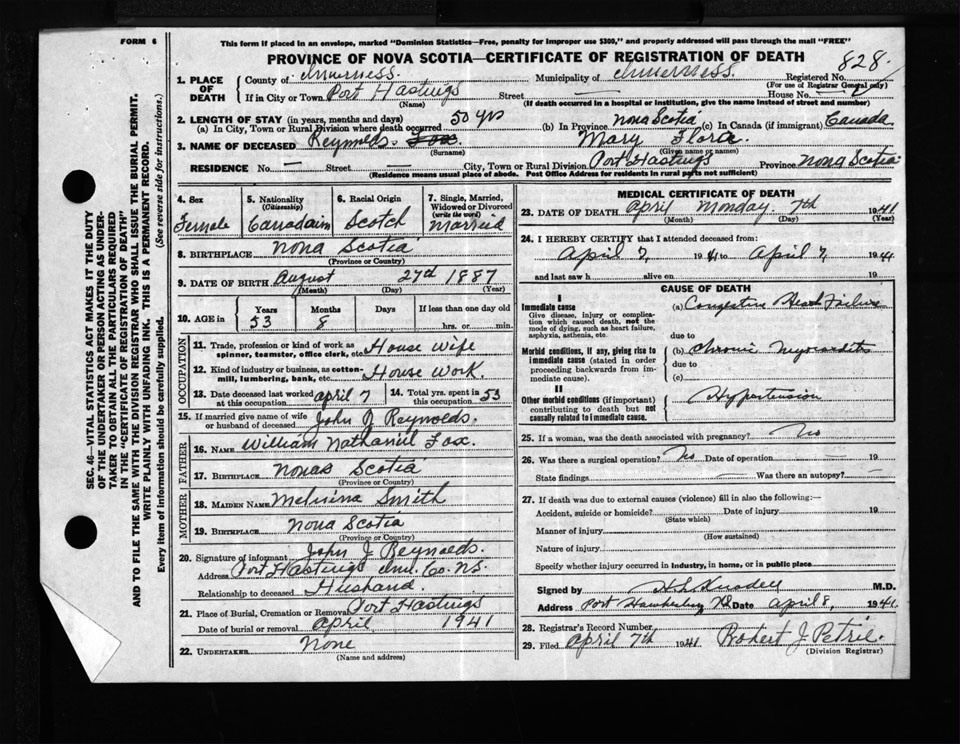 FORM 6
This form if placed in an envelope, marked "Dominion Statistics—Free, penalty for improper use $300," and properly addressed will pass through the mail "FREE"
PROVINCE OF NOVA SCOTIA—CERTIFICATE OF REGISTRATION OF DEATH
828
SEC. 46—VITAL STATISTICS ACT MAKES IT THE DUTY
OF THE UNDERTAKER OR PERSON ACTING AS UNDER-
TAKER TO OBTAIN ALL THE PARTICULARS REQUIRED
IN THE "CERTIFICATE OF REGISTRATION OF DEATH"
AND TO FILE THE SAME WITH THE DIVISION REGISTRAR WHO SHALL ISSUE THE BURIAL PERMIT.
WRITE PLAINLY WITH UNFADING INK. THIS IS A PERMANENT RECORD.
Every item of information should be carefully supplied. (See reverse side for instructions.)
1. PLACE OF DEATH
County of Inverness. Municipality of Inverness. Registered No.
(For use of Registrar General only)
If in City or Town Port Hastings Street — House No. —
(Name) (If death occurred in a hospital or institution, give the name instead of street and number)
2. LENGTH OF STAY (in years, months and days)
(a) In City, Town or Rural Division where death occurred 50 yrs (b) In Province Nova Scotia (c) In Canada (if immigrant) Canada
3. NAME OF DECEASED Reynolds. Fox. Mary Flora.
(Surname) (Given name or names)
RESIDENCE No. — Street City, Town or Rural Division Port Hastings Province Nova Scotia
(Residence means usual place of abode. Post Office Address for residents in rural parts not sufficient)
4. Sex
Female
5. Nationality
(Citizenship)
Canadain
6. Racial Origin
Scotch
7. Single, Married, Widowed or Divorced
(write the word)
Married
8. BIRTHPLACE Nova Scotia
(Province or Country)
9. DATE OF BIRTH August 27th 1887
(Month) (Day) (Year)
10. AGE in Years Months Days If less than one day old
53 8 hrs. or min.
OCCUPATION
11. Trade, profession or kind of work as
spinner, teamster, office clerk, etc. House Wife
12. Kind of industry or business, as cotton-
mill, lumbering, bank, etc. House Work.
13. Date deceased last worked
at this occupation April 7
14. Total yrs. spent in
this occupation 53
15. If married give name of wife
or husband of deceased John J Reynolds.
FATHER
16. NAME William Nathaniel Fox.
17. BIRTHPLACE Novas Scotia
(Province or Country)
MOTHER
18. MAIDEN NAME Melvina Smith
19. BIRTHPLACE Nova Scotia
(Province or Country)
20. Signature of informant John J Reynolds.
Address Port Hastings Inv. Co. N.S.
Relationship to deceased Husband
21. Place of Burial, Cremation or Removal Port Hastings
Date of burial or removal April 1941
22. UNDERTAKER None
(Name and address)
MEDICAL CERTIFICATE OF DEATH
23. DATE OF DEATH April Monday. 7th 1941
(Month) (Day) (Year)
24. I HEREBY CERTIFY that I attended deceased from:
April 7, 1941 to April 7, 1941
and last saw h alive on 19
CAUSE OF DEATH
I
Immediate cause
Give disease, injury or complica-
tion which caused death, not the
mode of dying, such as heart failure,
asphyxia, asthenia, etc.
(a) Congestive Heart Failure
due to
Morbid conditions, if any, giving rise to
immediate cause (stated in order
proceeding backwards from im-
mediate cause).
(b) Chronic Myocarditis
due to
(c)
II
Other morbid conditions (if important)
contributing to death but not
causally related to immediate cause.
Hypertension
25. If a woman, was the death associated with pregnancy? No
26. Was there a surgical operation? No Date of operation — 19
State findings Was there an autopsy? —
27. If death was due to external causes (violence) fill in also the following:—
Accident, suicide or homicide? Date of injury 19
(State which)
Manner of injury
(How sustained)
Nature of injury
Specify whether injury occurred in industry, in home, or in public place
Signed by M.D.
Address Port Hawkesbury NS Date April 8, 1941.
28. Registrar's Record Number
29. Filed April 7th 1941 Robert J. Petrie.
(Division Registrar)